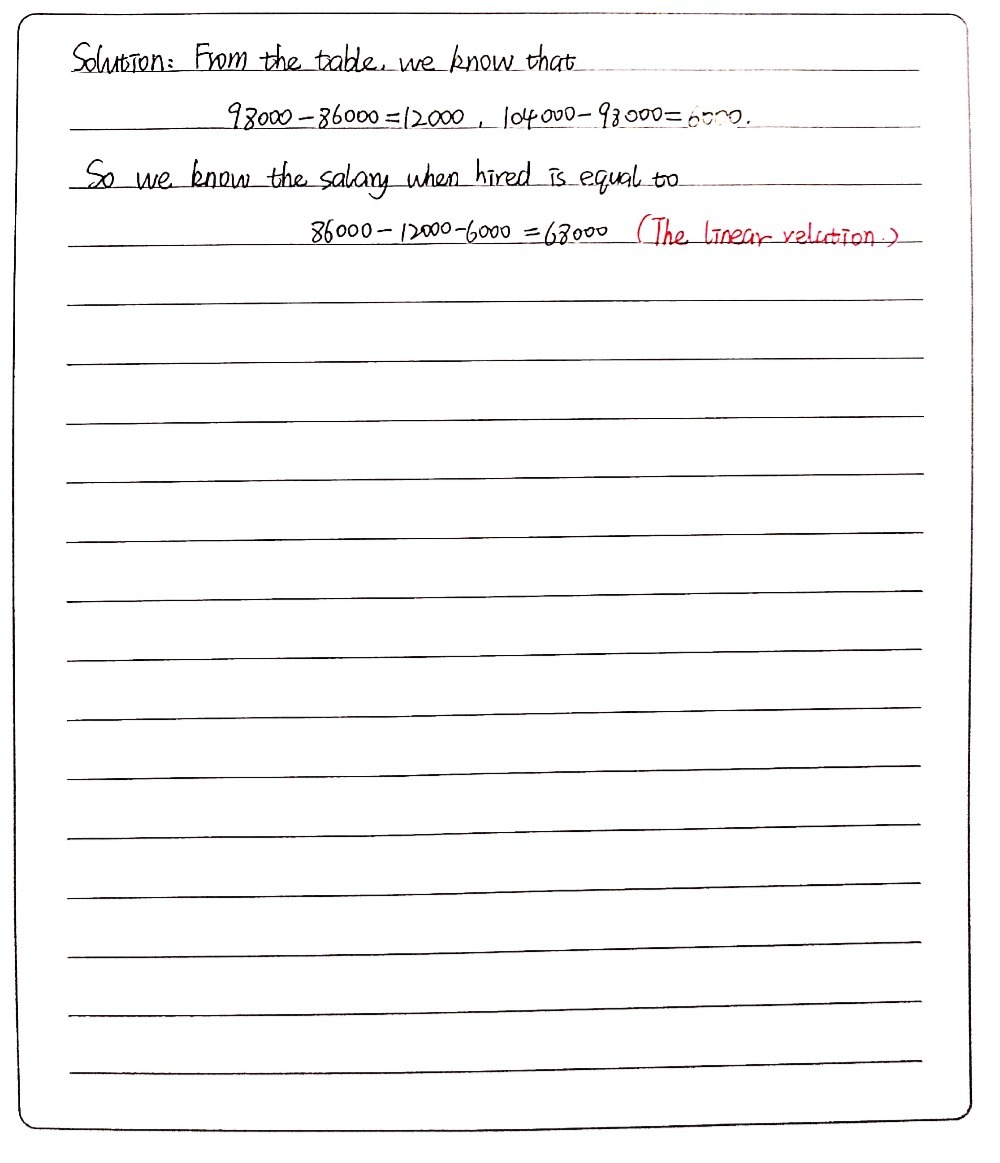 Solution: From the table, we know that
98000-86000=12000, 104000-98000=6000.
So we know the salary when hired is equal to
86000-12000-6000=68000 (The linear relation.)